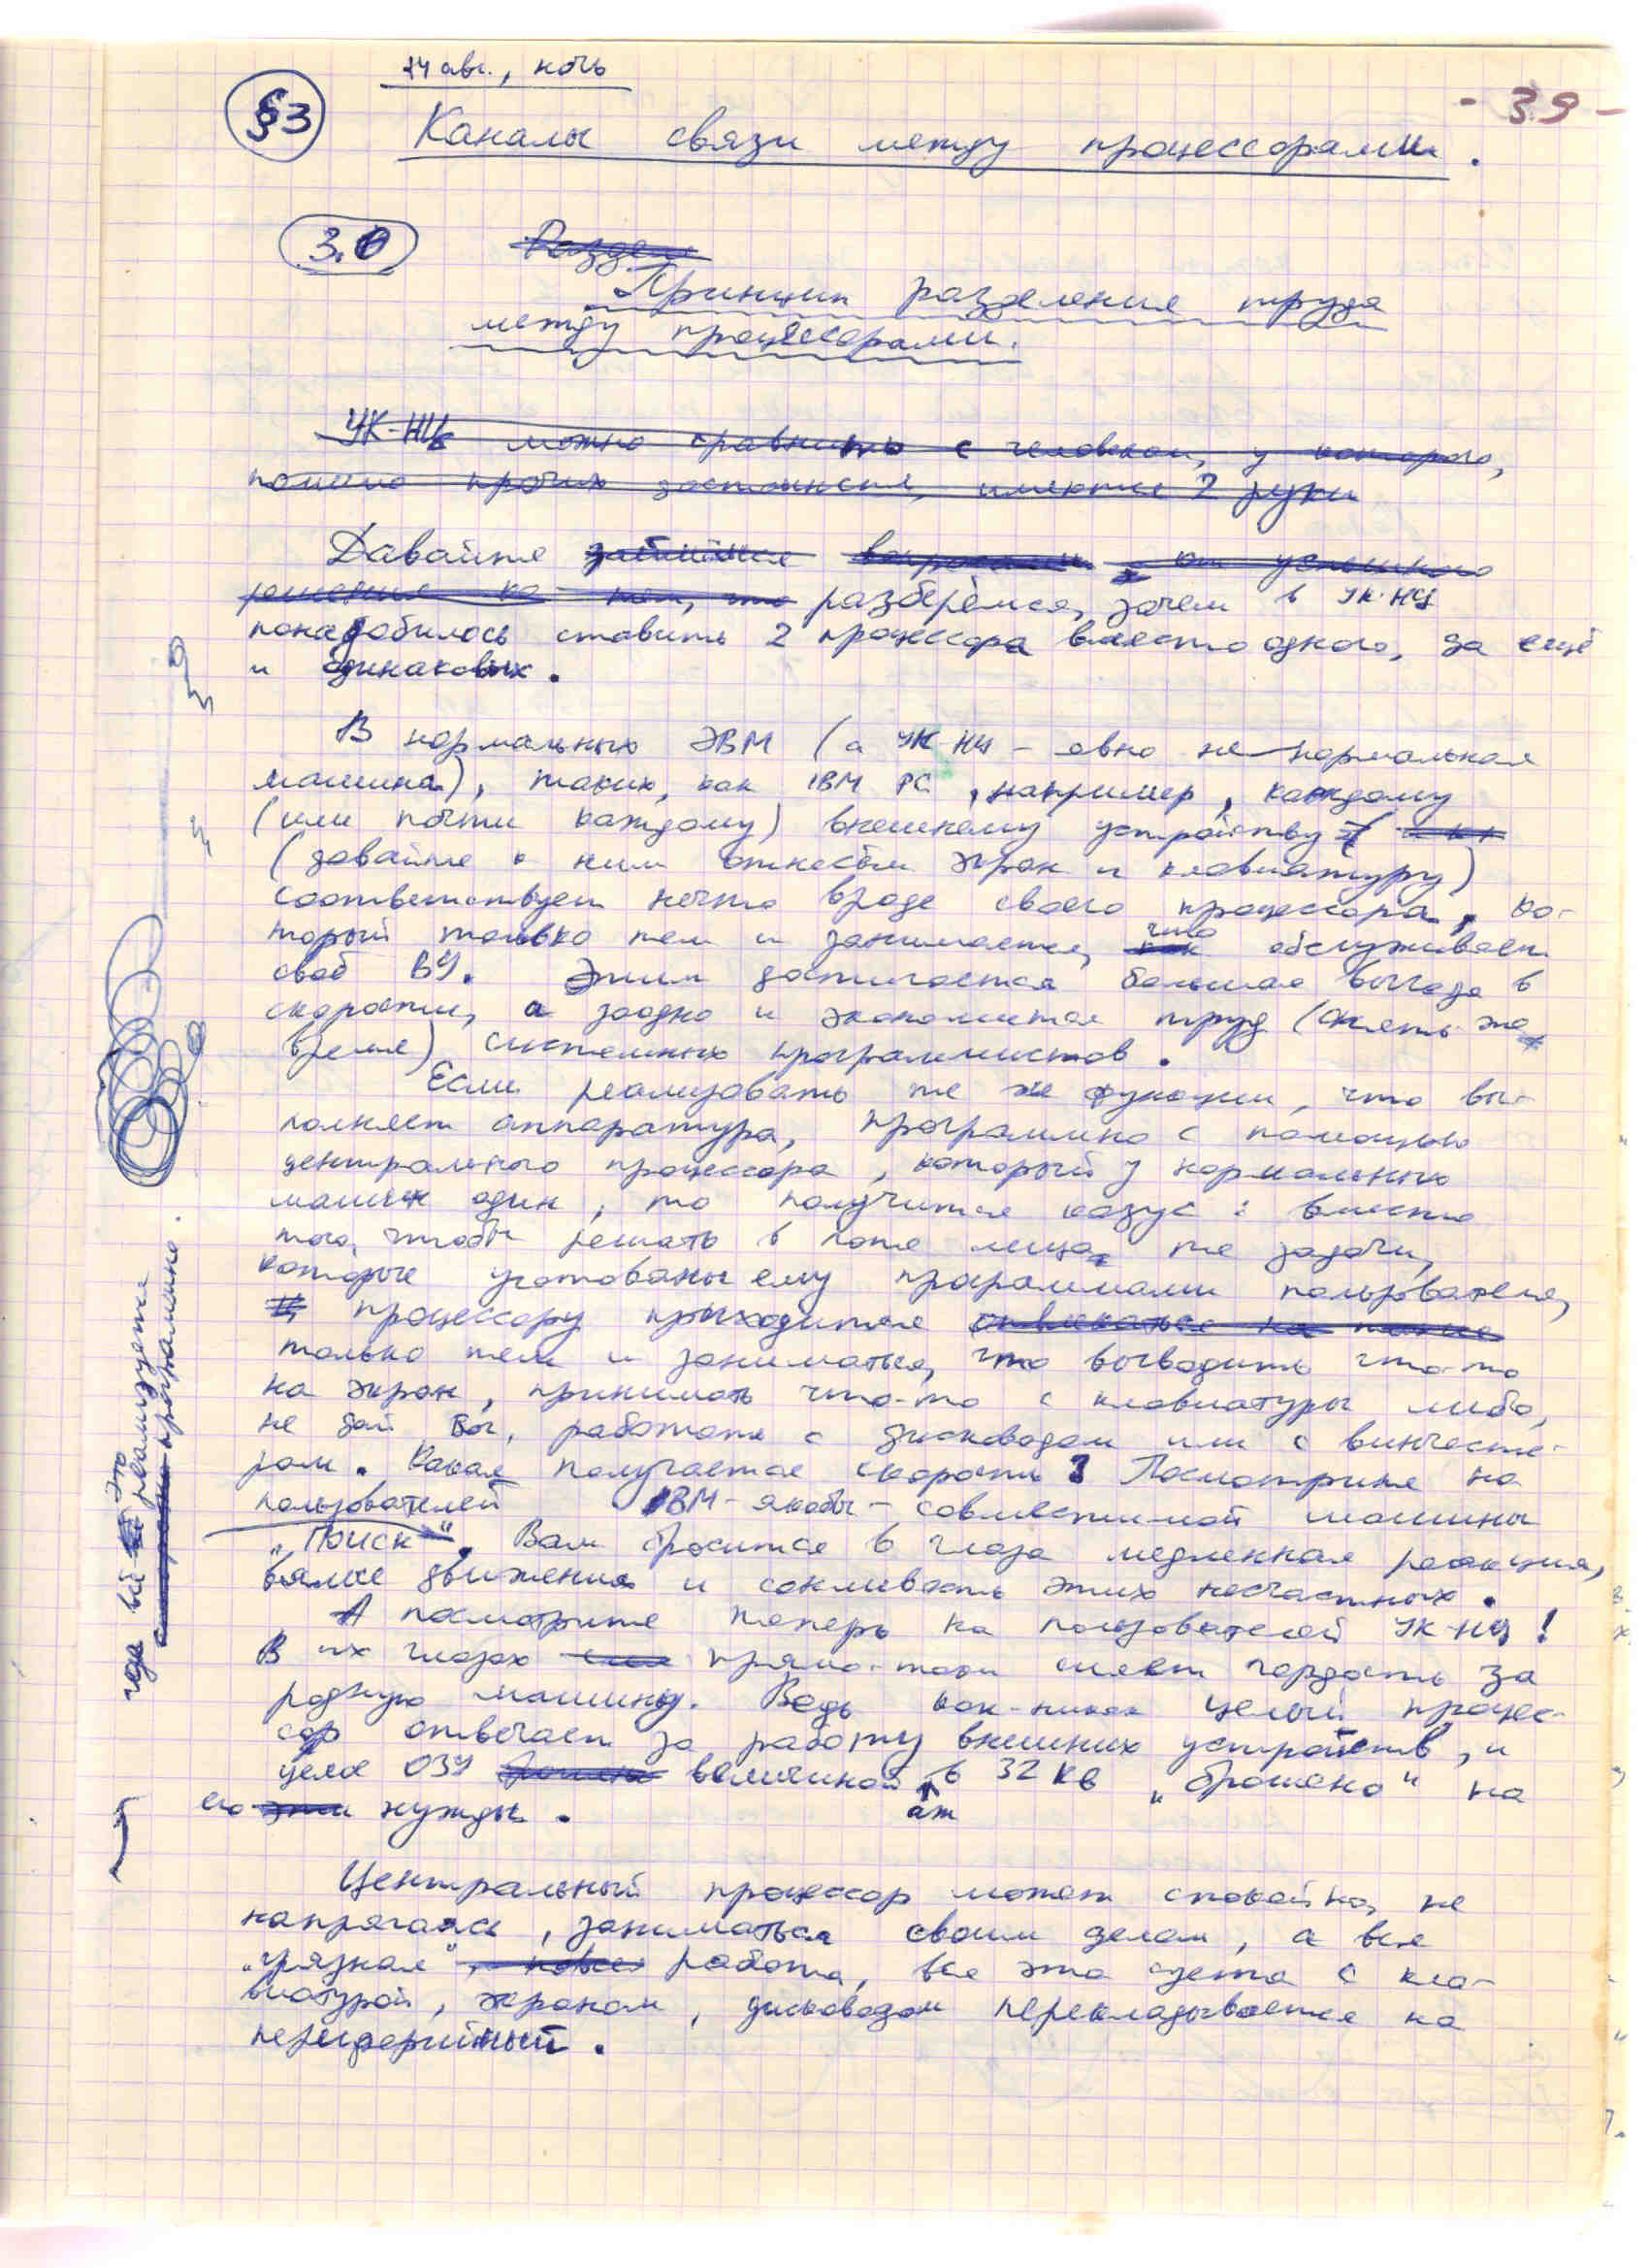 24 авг., ночь
- 39 -
§3
Каналы связи между процессорами.
3.0
Раздел
Принцип разделения труда
между процессорами.
УК-НЦ можно сравнить с человеком, у которого,
помимо прочих достоинств, имеются 2 руки
Давайте займёмся вопросами, от успешного
решения разберёмся, зачем в УК-НЦ
понадобилось ставить 2 процессора вместо одного, да ещё
и одинаковых.
В нормальных ЭВМ (а УК-НЦ – явно не нормальная
машина), таких, как IBM PC, например, каждому
(или почти каждому) внешнему устройству
(давайте к ним отнесём экран и клавиатуру)
соответствует нечто вроде своего процессора, ко-
торый только тем и занимается, что обслуживает
своё ВУ. Этим достигается большая выгода в
скорости, а заодно и экономится труд (опять-же
время) системных программистов.
Если реализовать те же функции, что вы-
полняет аппаратура, программно с помощью
центрального процессора, который у нормальных
машин один, то получится казус: вместо
того, чтобы решать в поте лица те задачи,
которые уготованы ему программами пользователя,
процессору приходится отвлекаться на
только тем и заниматься, что выводить что-то
на экран, принимать что-то с клавиатуры либо,
не дай Бог, работать с дисководом или с винчесте-
ром. Какая получается скорость? Посмотрите на
пользователей IBM-якобы-совместимой машины
„Поиск". Вам бросится в глаза медленная реакция,
вялые движения и сонливость этих несчастных.
А посмотрите теперь на пользователей УК-НЦ!
В их глазах прямо-таки сияет гордость за
родную машину. Ведь как-никак целый процес-
сор отвечает за работу внешних устройств, и
целое ОЗУ величиной аж в 32 Кв „брошено" на
его нужды.
Центральный процессор может спокойно, не
напрягаясь, заниматься своим делом, а вся
„грязная" работа, вся эта суета с кла-
виатурой, экраном, дисководом перекладывается на
периферийный.
где всё это реализуется
программно.